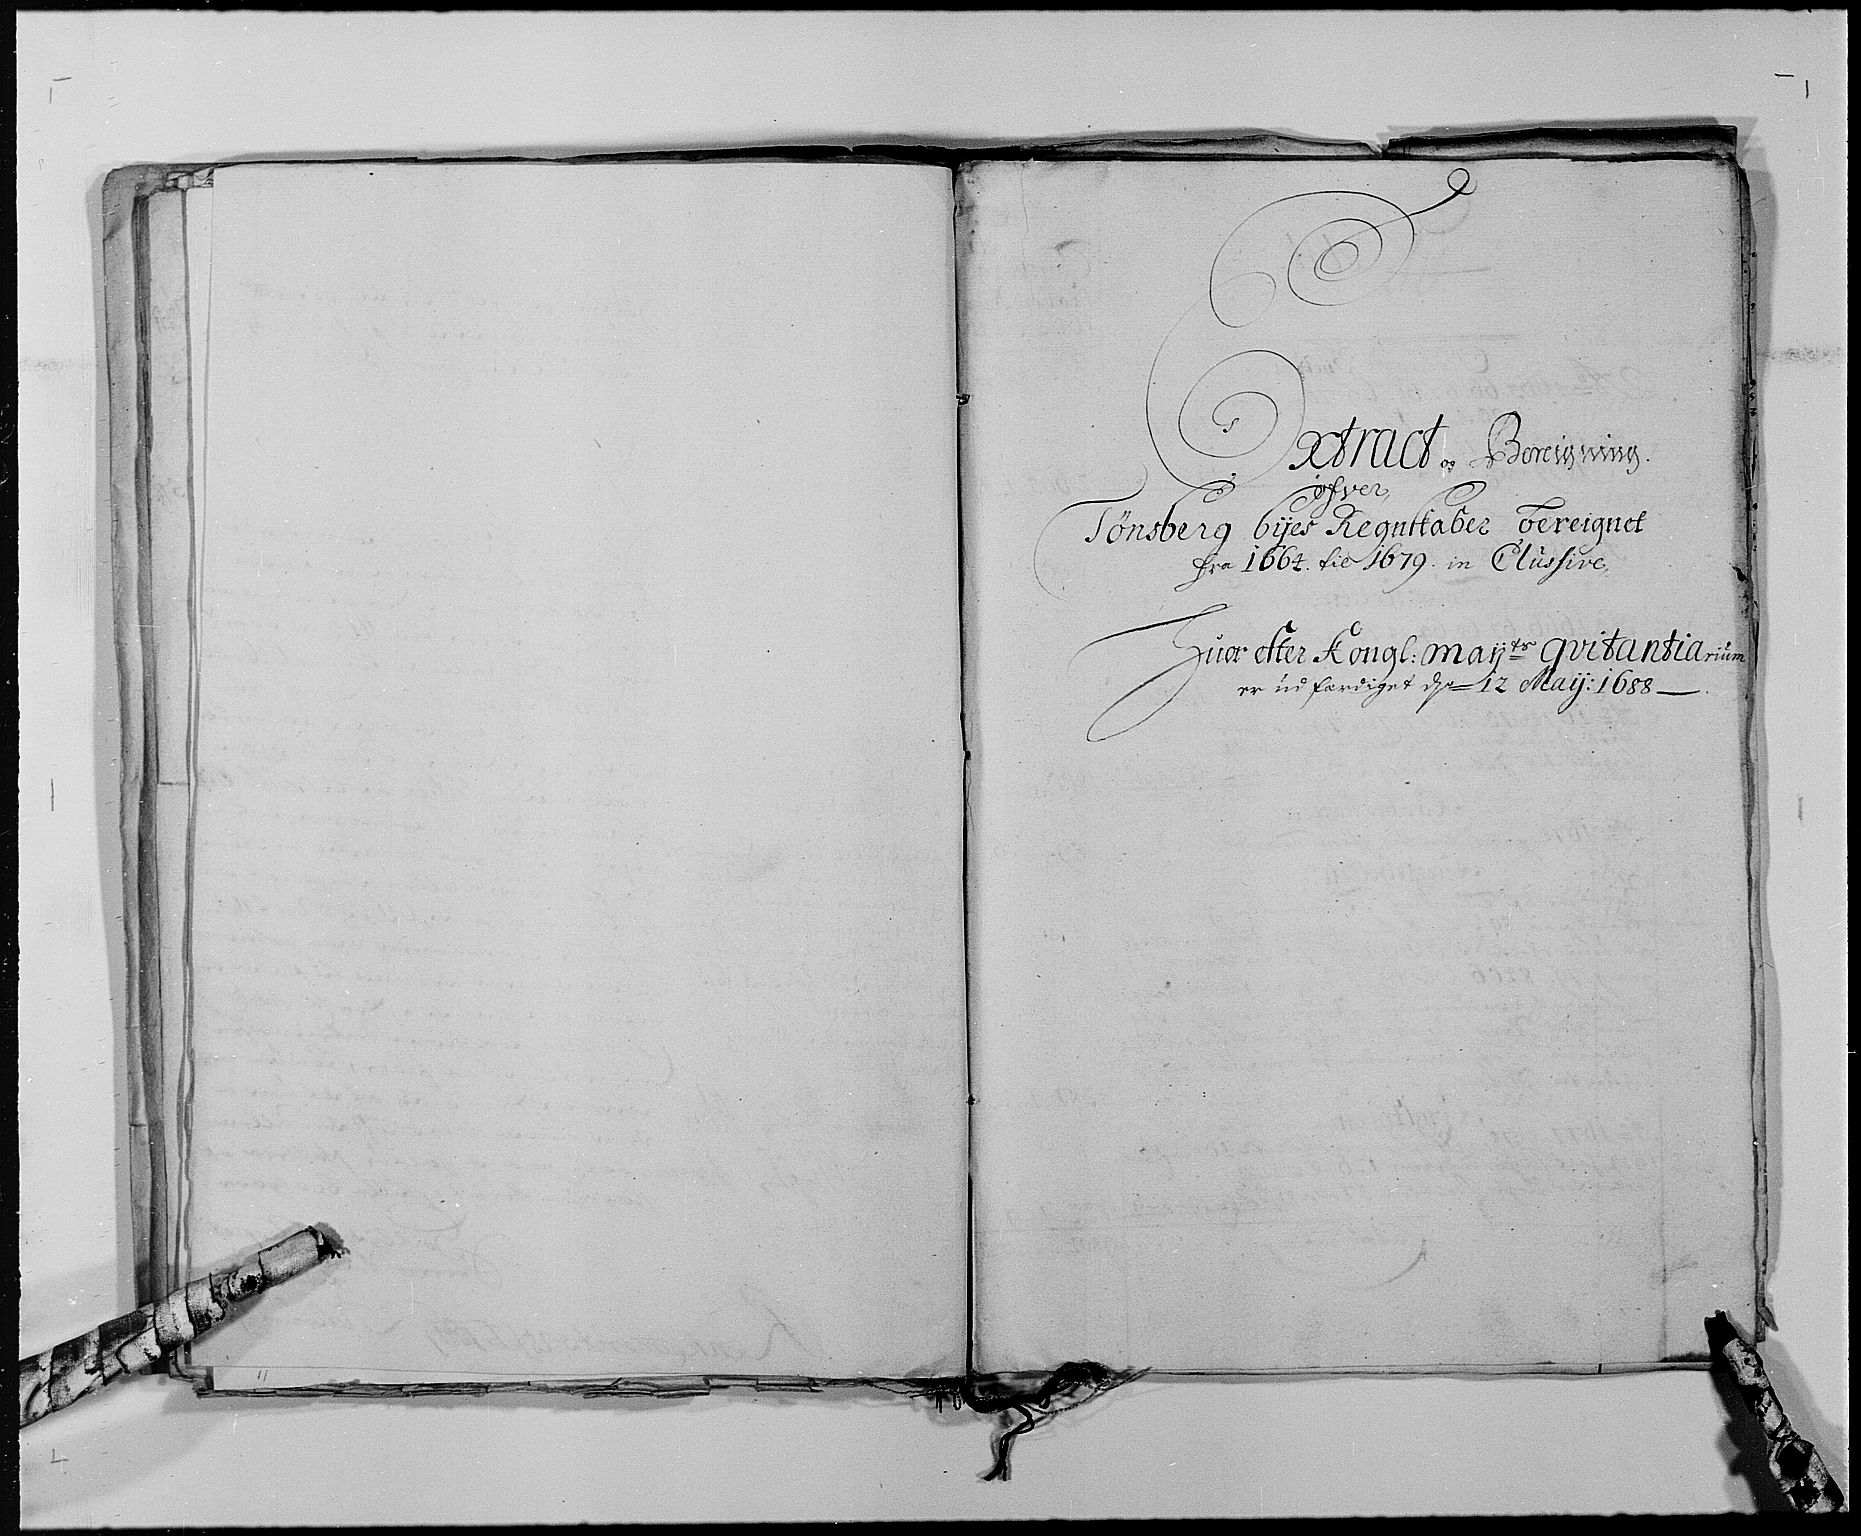 Extract og Bereigning.
ofver,
Tönsberg byes Regnskaber bereignet
fra 1664. til 1679. in Clússive,
Huor efter Kongl: Maÿts qvitantiarium
er úd færdiget dn 12 Maÿ: 1688